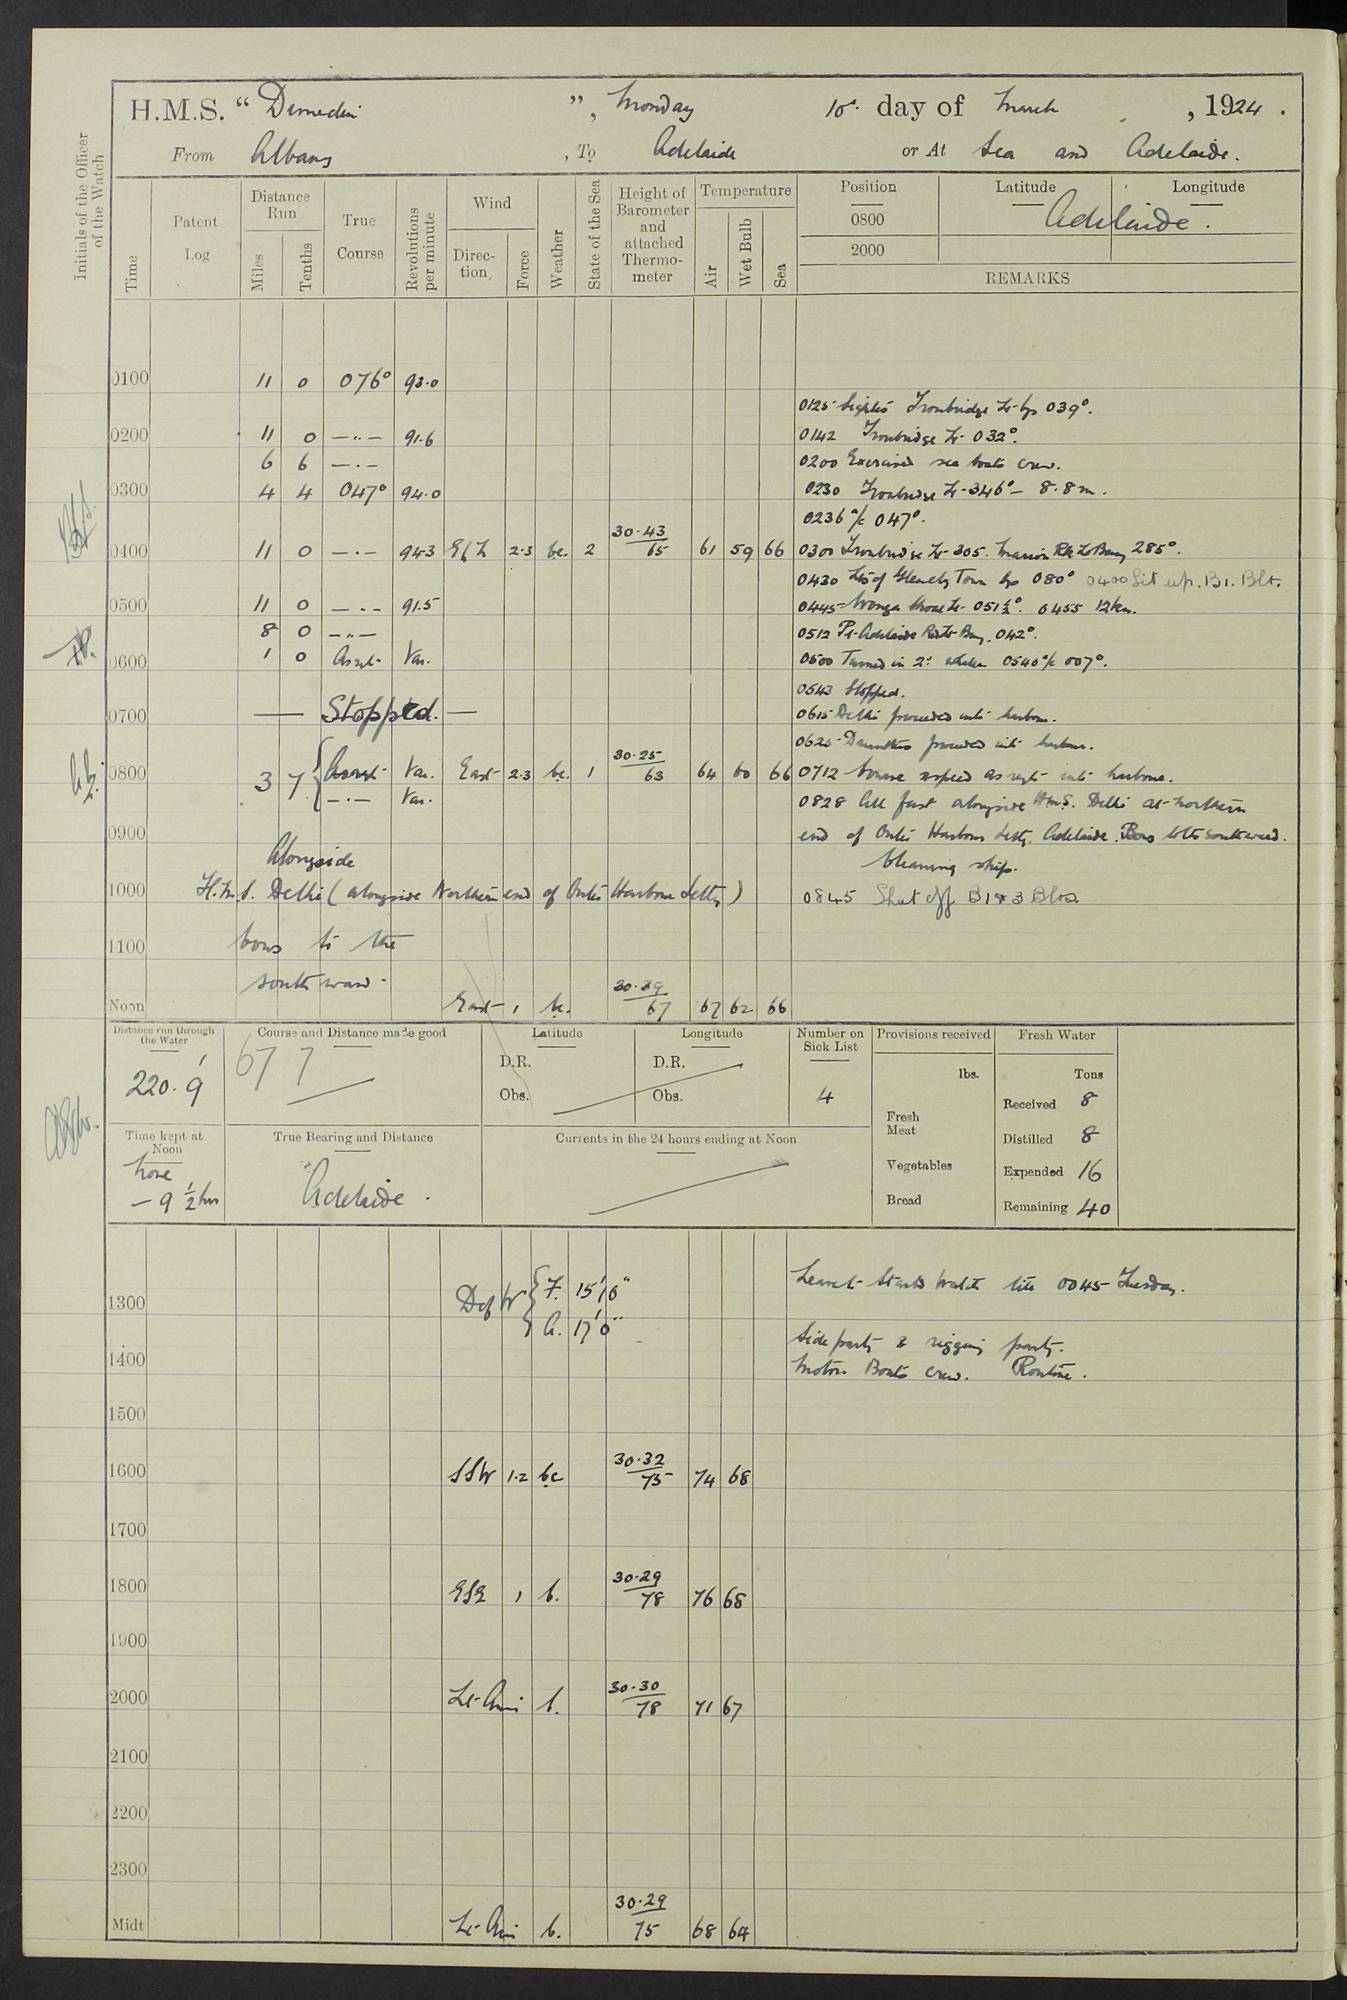 H.M.S. "Dunedin", Monday 10th day of March, 1924.
From Albany, To Adelaide or At Sea and Adelaide.
Initials of the Officer of the Watch
Time
Patent Log
Distance Run
Miles
Tenths
True Course
Revolutions per minute
Wind
Direction
Force
Weather
State of the Sea
Height of Barometer and attached Thermometer
Temperature
Air
Wet Bulb
Sea
Position
0800
2000
Latitude
Longitude
Adelaide.
REMARKS
0100 11 0 076° 93.0
0125 Sighted Troubridge Lt brg 039°.
0200 11 0 —"— 91.6
0142 Troubridge Lt. 032°.
6 6 —"—
0200 Exercised sea boats crew.
0300 4 4 047° 94.0
0230 Troubridge Lt 346° — 8.8 m.
0236 a/c 047°.
0400 11 0 —"— 94.3 E/S 2.3 bc. 2 30.43 65 61 59 66
0300 Troubridge Lt 305. Marion Rk Lt Buoy 285°.
0430 Lts of Glenelg Town brg 080° 0400 Lit up. B1. Blr.
0500 11 0 —"— 91.5
0445 Wonga Shoal Lt. 051½°. 0455 12 kn.
8 0 —"—
0512 Pt. Adelaide Buoy. 042°.
0600 1 0 Asreqt. Var.
0500 Turned in 2's 0540 a/c 007°.
0543 Stopped.
0700 — Stopped. —
0615 Delhi proceeded into harbour.
0625 Dauntless proceeded into harbour.
0800 3 7 { Asreqt. Var. East 2.3 bc. 1 30.25 63 64 60 66
—"— Var.
0712 Course & speed as reqt into harbour.
0828 All fast alongside HMS. Delhi at northern
0900
end of Outer Harbour Jetty. Adelaide. Bows to the southward.
Alongside
Cleaning ship.
1000 H.M.S. Delhi (alongside Northern end of Outer Harbour Jetty)
0845 Shut off B1 & 3 Blrs.
1100 bows to the
southward.
Noon East 1 bc. 30.29 67 67 62 66
Distance run through the Water
220.9
Course and Distance made good
67 7
Latitude
D.R.
Obs.
Longitude
D.R.
Obs.
Number on Sick List
4
Provisions received
lbs.
Fresh Meat
Vegetables
Bread
Fresh Water
Tons
Received 8
Distilled 8
Expended 16
Remaining 40
Time kept at Noon
Zone
— 9½ hrs
True Bearing and Distance
Adelaide.
Currents in the 24 hours ending at Noon
1300 Dft W { F. 15' 6"
A. 17' 0"
Leave to Starbd Watch till 0045 Tuesday.
Side party & rigging party.
1400
Motor Boats crew. Routine.
1500
1600 SSW 1.2 bc 30.32 75 74 68
1700
1800 ESE 1 b. 30.29 78 76 68
1900
2000 Lt Airs b. 30.30 78 71 67
2100
2200
2300
Midt Lt Airs b. 30.29 75 68 64